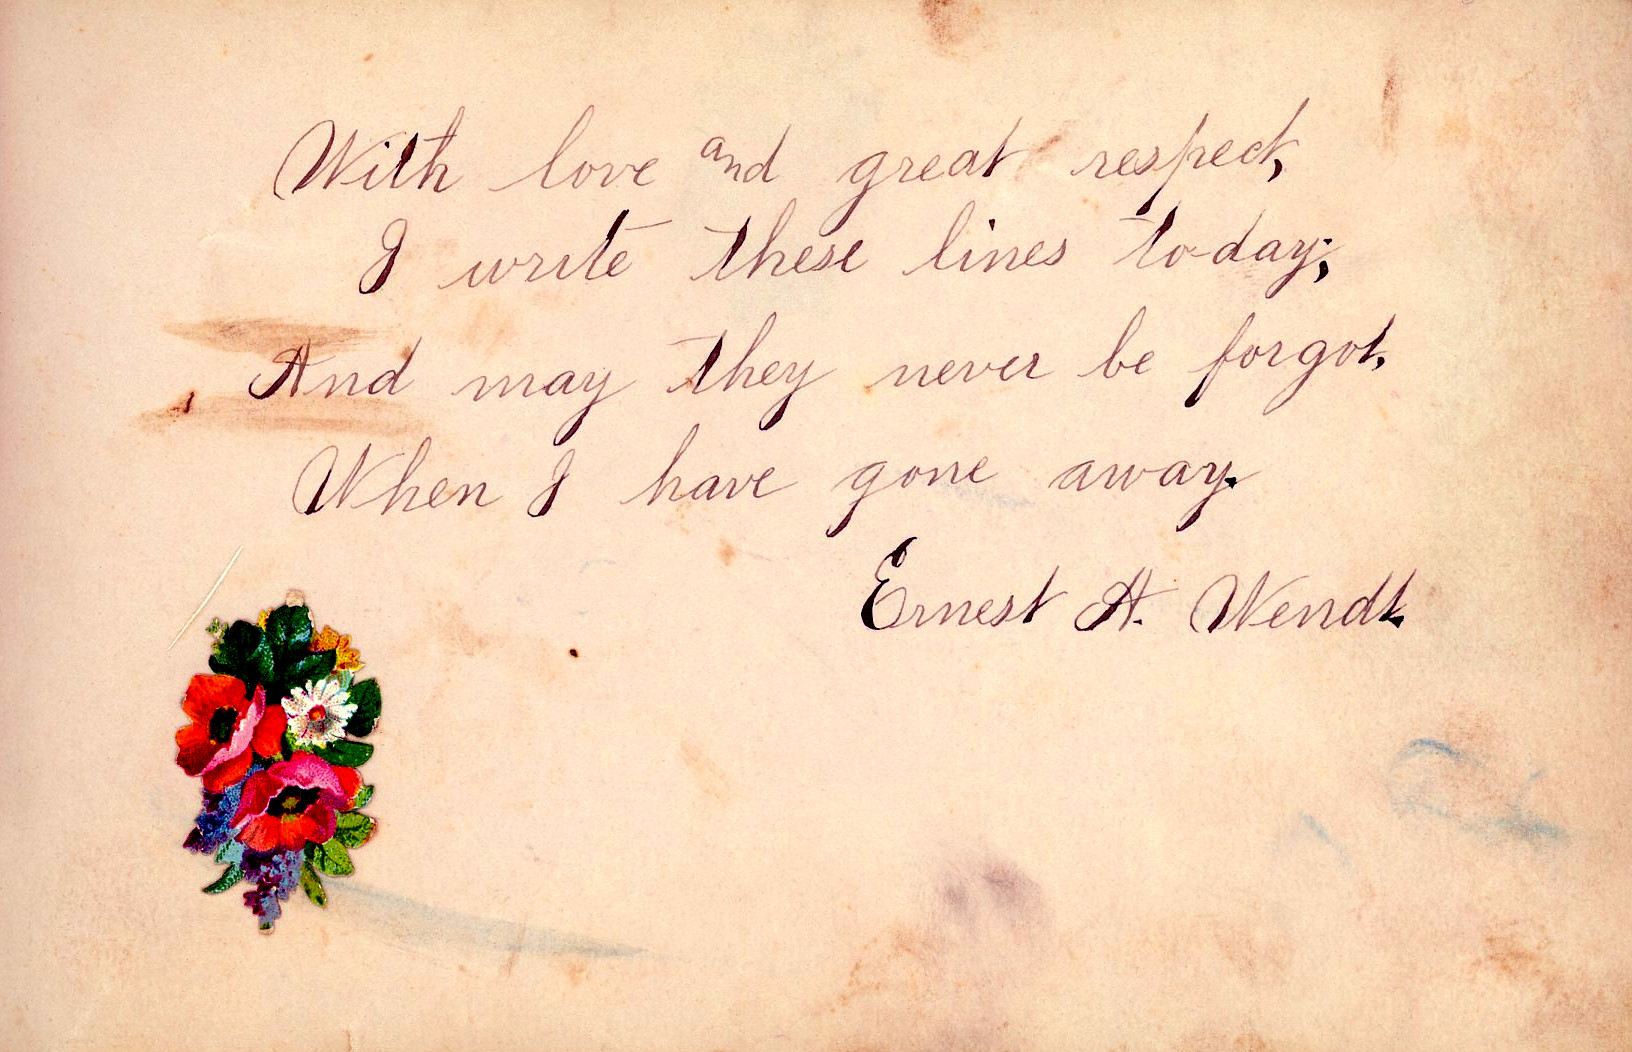 With love and great respect,
I write these lines to-day;
And may they never be forgot,
When I have gone away.
Ernest A. Wendt.